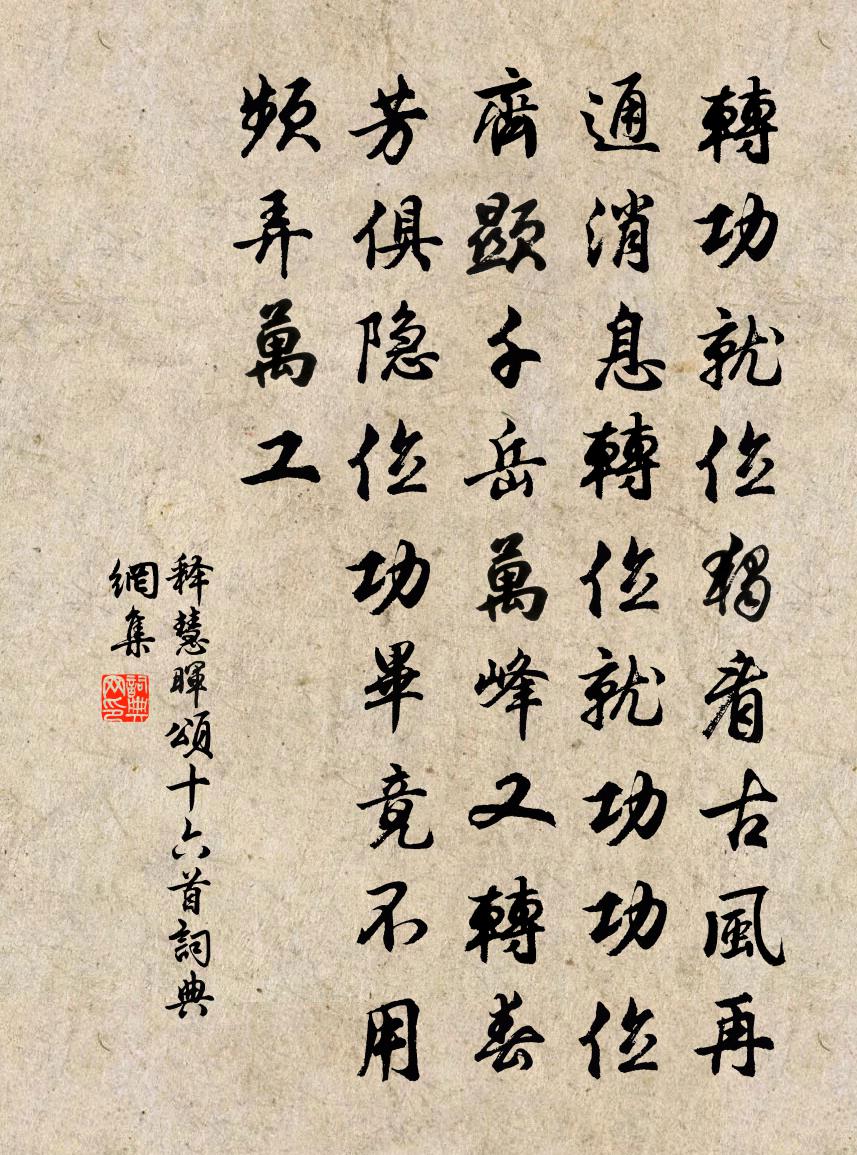 轉功就位獨看古風再
通消息轉位就功功位
齊顯千岳萬峰又轉春
芳俱隐位功畢竟不用
頻弄萬工
释慧暉頌十六首詞典
網集
詞典